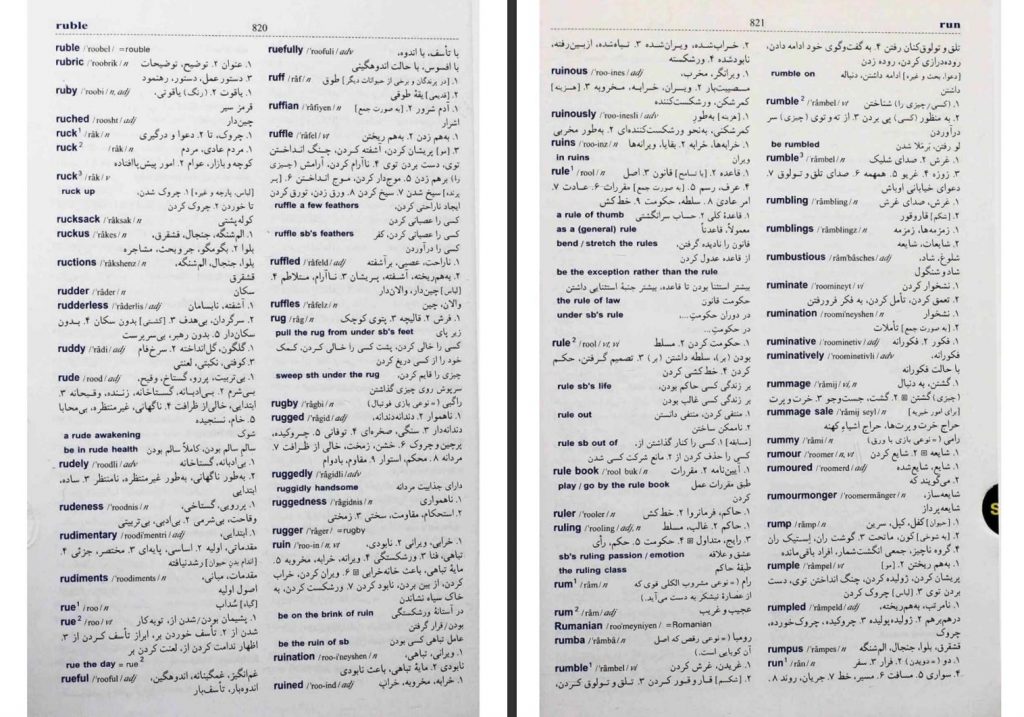 ruble
820
ruble /ˈroobel/ =rouble
rubric /ˈroobrik/ n ۱. عنوان ۲. توضیح، توضیحات
۳. دستور عمل، دستور، رهنمود
ruby /ˈroobi/ n, adj ۱. یاقوت ۲. (رنگِ) یاقوتی،
قرمز سیر
ruched /roosht/ adj چین‌دار
ruck¹ /râk/ n ۱. چروک، تا ۲. دعوا و درگیری
ruck² /râk/ n ۱. مردم عادی، مردم
کوچه و بازار، عوام ۲. امور پیش‌پاافتاده
ruck³ /râk/ v
ruck up [لباس، پارچه و غیره] ۱. چروک شدن،
تا خوردن ۲. چروک کردن
rucksack /ˈrâksak/ n کوله‌پشتی
ruckus /ˈrâkes/ n ۱. الم‌شنگه، جنجال، قشقرق،
بلوا ۲. بگومگو، جر و بحث، مشاجره
ructions /ˈrâkshenz/ n بلوا، جنجال، الم‌شنگه،
قشقرق
rudder /ˈrâder/ n سکان
rudderless /ˈrâderlis/ adj ۱. آشفته، نابسامان
۲. سرگردان، بی‌هدف ۳. [کشتی] بدون سکان ۴. بدون
سکان‌دار ۵. بدون رهبر، بی‌سرپرست
ruddy /ˈrâdi/ adj ۱. گلگون، گل‌انداخته ۲. سرخ‌فام
۳. کوفتی، نکبتی، لعنتی
rude /rood/ adj ۱. بی‌تربیت، پررو، گستاخ، وقیح،
بی‌شرم ۲. بی‌ادبانه، گستاخانه، زننده، وقیحانه ۳.
ابتدایی، خالی از ظرافت ۴. ناگهانی، غیرمنتظره، بی‌محابا
۵. خام، نسنجیده
a rude awakening شوک
be in rude health سالمِ سالم بودن، کاملاً سالم بودن
rudely /ˈroodli/ adv ۱. بی‌ادبانه، گستاخانه
۲. به‌طور ناگهانی، به‌طور غیرمنتظره، نامنتظر ۳. ساده،
ابتدایی
rudeness /ˈroodnis/ n ۱. پررویی، گستاخی،
وقاحت، بی‌شرمی ۲. بی‌ادبی، بی‌تربیتی
rudimentary /roodiˈmentri/ adj ۱. ابتدایی،
مقدماتی، اولیه ۲. اساسی، پایه‌ای ۳. مختصر، جزئی ۴.
[اندام بدن حیوان] رشدنیافته
rudiments /ˈroodiments/ n مقدمات، مبانی،
اصول اولیه
rue¹ /roo/ n [گیاه] سُداب
rue² /roo/ vt ۱. پشیمان بودن از، شدن، توبه‌کار
شدن از ۲. تأسف خوردن بر، ابراز تأسف کردن از ۳.
اظهار ندامت کردن از، لعنت کردن بر
rue the day = rue²
rueful /ˈrooful/ adj غم‌انگیز، غمگینانه، اندوهگین،
اندوه‌بار، تأسف‌بار
ruefully /ˈroofuli/ adv با تأسف، با اندوه،
با افسوس، با حالت اندوهگینی
ruff /râf/ n ۱. [در پرندگان و برخی از حیوانات دیگر] طوق
۲. [قدیمی] یقهٔ طوقی
ruffian /ˈrâfiyen/ n ۱. آدم شرور ۲. [به صورت جمع]
اشرار
ruffle /ˈrâfel/ vt ۱. به‌هم زدن ۲. به‌هم ریختن
۳. [مو] پریشان کردن، آشفته کردن، چنگ انداختن
توی، دست بردن توی ۴. ناآرام کردن، آرامش (چیزی
را) برهم زدن ۵. موج‌دار کردن، موج انداختن ۶. [پر
پرنده] سیخ شدن ۷. سیخ کردن ۸. ورق زدن، تورق کردن
ruffle a few feathers ایجاد ناراحتی کردن،
کسی را عصبانی کردن
ruffle sb's feathers کسی را عصبانی کردن، کفر
کسی را درآوردن
ruffled /ˈrâfeld/ adj ۱. ناراحت، عصبی، برآشفته
۲. به‌هم‌ریخته، آشفته، پریشان ۳. ناآرام، متلاطم ۴.
[لباس] چین‌دار، والان‌دار
ruffles /ˈrâfelz/ n والان، چین
rug /râg/ n ۱. فرش ۲. قالیچه ۳. پتوی کوچک
pull the rug from under sb's feet زیر پای
کسی را خالی کردن، پشت کسی را خالی کردن، کمک
خود را از کسی دریغ کردن
sweep sth under the rug چیزی را قایم کردن،
سرپوش روی چیزی گذاشتن
rugby /ˈrâgbi/ n راگبی (= نوعی بازی فوتبال)
rugged /ˈrâgid/ adj ۱. ناهموار ۲. دندانه‌دندانه،
دندانه‌دار ۳. سنگی، صخره‌ای ۴. توفانی ۵. چروکیده،
پرچین و چروک ۶. خشن، زمخت، خالی از ظرافت ۷.
مردانه ۸. محکم، استوار ۹. مقاوم، بادوام
ruggedly /ˈrâgidli/ adv
ruggidly handsome دارای جذابیت مردانه
ruggedness /ˈrâgidnis/ n ۱. ناهمواری
۲. استحکام، مقاومت، سختی ۳. زمختی
rugger /ˈrâger/ =rugby
ruin /ˈroo-in/ n, vt ۱. خرابی، ویرانی ۲. نابودی،
تباهی، فنا ۳. ورشکستگی ۴. ویرانه، خرابه، مخروبه ۵.
مایهٔ تباهی، باعث خانه‌خرابی ▣ ۶. ویران کردن، خراب
کردن، از بین بردن، نابود کردن ۷. ورشکست کردن، به
خاک سیاه نشاندن
be on the brink of ruin در آستانهٔ ورشکستگی
بودن/قرار گرفتن
be the ruin of sb عامل تباهی کسی بودن
ruination /roo-iˈneyshen/ n ۱. ویرانی، تباهی،
نابودی ۲. مایهٔ تباهی، باعث نابودی
ruined /ˈroo-ind/ adj ۱. خرابه، مخروبه، خراب
821
run
۲. خراب‌شده، ویران‌شده ۳. تباه‌شده، ازبین‌رفته،
نابودشده ۴. ورشکسته
ruinous /ˈroo-ines/ adj ۱. ویرانگر، مخرب،
مصیبت‌بار ۲. ویران، خرابه، مخروبه ۳. [هزینه]
کمرشکن، ورشکست‌کننده
ruinously /ˈroo-inesli/ adv ۱. [هزینه] به‌طورِ
کمرشکنی، به‌نحو ورشکست‌کننده‌ای ۲. به‌طور مخربی
ruins /ˈroo-inz/ n ۱. خرابه‌ها، خرابه ۲. بقایا، ویرانه‌ها
in ruins ویران
rule¹ /rool/ n ۱. قاعده ۲. [با تسامح] قانون ۳. اصل
۴. عرف، رسم ۵. [به صورت جمع] مقررات ۶. عادت ۷.
امر عادی ۸. سلطه، حکومت ۹. خط‌کش
a rule of thumb ۱. قاعدهٔ کلی ۲. حساب سرانگشتی
as a (general) rule معمولاً، قاعدتاً
bend / stretch the rules قانون را نادیده گرفتن،
از قاعده عدول کردن
be the exception rather than the rule
بیشتر استثنا بودن تا قاعده، بیشتر جنبهٔ استثنایی داشتن
the rule of law حکومت قانون
under sb's rule در دوران حکومتِ...،
در حکومتِ...
rule² /rool/ vt, vi ۱. حکومت کردن ۲. مسلط
بودن (بر)، سلطه داشتن (بر) ۳. تصمیم گرفتن، حکم
کردن ۴. خط‌کشی کردن
rule sb's life بر زندگی کسی حاکم بودن،
بر زندگی کسی غالب بودن
rule out ۱. منتفی کردن، منتفی دانستن
۲. ناممکن ساختن
rule sb out of [مسابقه] ۱. کسی را کنار گذاشتن از،
کسی را حذف کردن از ۲. مانع شرکت کسی شدن
rule book /ˈrool buk/ n ۱. آیین‌نامه ۲. مقررات
play / go by the rule book طبق مقررات عمل
کردن
ruler /ˈrooler/ n ۱. حاکم، فرمانروا ۲. خط‌کش
ruling /ˈrooling/ adj, n ۱. حاکم ۲. غالب، مسلط
۳. رایج، متداول ▣ ۴. حکومت ۵. حکم، رأی
sb's ruling passion / emotion عشق و علاقه
the ruling class طبقهٔ حاکم
rum¹ /râm/ n رام (= نوعی مشروب الکلی قوی که
از عصارهٔ نیشکر به دست می‌آید.)
rum² /râm/ adj عجیب و غریب
Rumanian /rooˈmeyniyen/ =Romanian
rumba /ˈrâmbâ/ n رومبا (= نوعی رقص که اصل
آن کوبایی است.)
rumble¹ /ˈrâmbel/ vi ۱. غریدن، غرش کردن
۲. [شکم] قاروقور کردن ۳. تلق و تولوق کردن،
تلق و تولوق‌کنان رفتن ۴. به گفت‌وگوی خود ادامه دادن،
روده‌درازی کردن، روده زدن
rumble on [دعوا، بحث و غیره] ادامه داشتن، دنباله
داشتن
rumble² /ˈrâmbel/ vt ۱. (کسی/چیزی را) شناختن
۲. به منظور (کسی) پی بردن ۳. از ته و توی (چیزی) سر
درآوردن
be rumbled لو رفتن، بَرملا شدن
rumble³ /ˈrâmbel/ n ۱. غرش ۲. صدای شلیک
۳. زوزه ۴. غریو ۵. همهمه ۶. صدای تلق و تولوق ۷.
دعوای خیابانی اوباش
rumbling /ˈrâmbling/ n ۱. غرش، صدای غرش
۲. [شکم] قاروقور
rumblings /ˈrâmblingz/ n ۱. زمزمه‌ها، زمزمه
۲. شایعات، شایعه
rumbustious /râmˈbâsches/ adj شلوغ، شاد،
شاد و شنگول
ruminate /ˈroomineyt/ vi ۱. نشخوار کردن
۲. تعمق کردن، تأمل کردن، به فکر فرورفتن
rumination /roomiˈneyshen/ n ۱. نشخوار
۲. [به صورت جمع] تأملات
ruminative /ˈroominetiv/ adj ۱. فکور ۲. فکورانه
ruminatively /ˈroominetivli/ adv فکورانه،
با حالت فکورانه
rummage /ˈrâmij/ vi, n ۱. گشتن، به دنبال
(چیزی) گشتن ▣ ۲. گشت، جست‌وجو ۳. خرت و پرت
rummage sale /ˈrâmij seyl/ n [برای امور خیریه]
حراج خرت و پرت‌ها، حراج اشیاءِ کهنه
rummy /ˈrâmi/ n رامی (= نوعی بازی با ورق)
rumour /ˈroomer/ n, vt ۱. شایعه ▣ ۲. شایع کردن
rumoured /ˈroomerd/ adj ۱. شایع، شایع‌شده
۲. می‌گویند که
rumourmonger /ˈroomermânger/ n شایعه‌ساز،
شایعه‌پرداز
rump /râmp/ n ۱. [حیوان] کفل، کپل، سرین
۲. [به شوخی] کون، ماتحت ۳. گوشت ران، اِستیک ران
۴. گروه ناچیز، جمعی انگشت‌شمار، افراد باقی‌مانده
rumple /ˈrâmpel/ vt ۱. به‌هم ریختن ۲. [مو]
پریشان کردن، ژولیده کردن، چنگ انداختن توی، دست
بردن توی ۳. [لباس] چروک کردن
rumpled /ˈrâmpeld/ adj ۱. نامرتب، به‌هم‌ریخته،
درهم‌برهم ۲. ژولیده‌پولیده ۳. چروکیده، چروک‌خورده،
چروک
rumpus /ˈrâmpes/ n قشقرق، بلوا، جنجال، الم‌شنگه
run¹ /rân/ n ۱. دو (= دویدن) ۲. فرار ۳. سفر
۴. سواری ۵. مسافت ۶. مسیر، خط ۷. جریان، روند ۸.